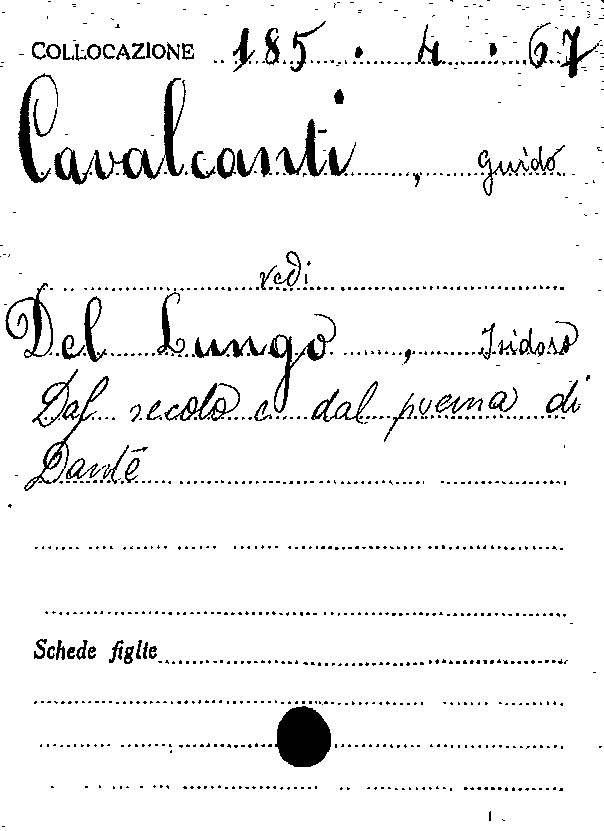 COLLOCAZIONE 185 . 4 . 67
Cavalcanti , Guido
vedi
Del Lungo , Isidoro
Dal secolo e dal poema di
Dante
Schede figlie